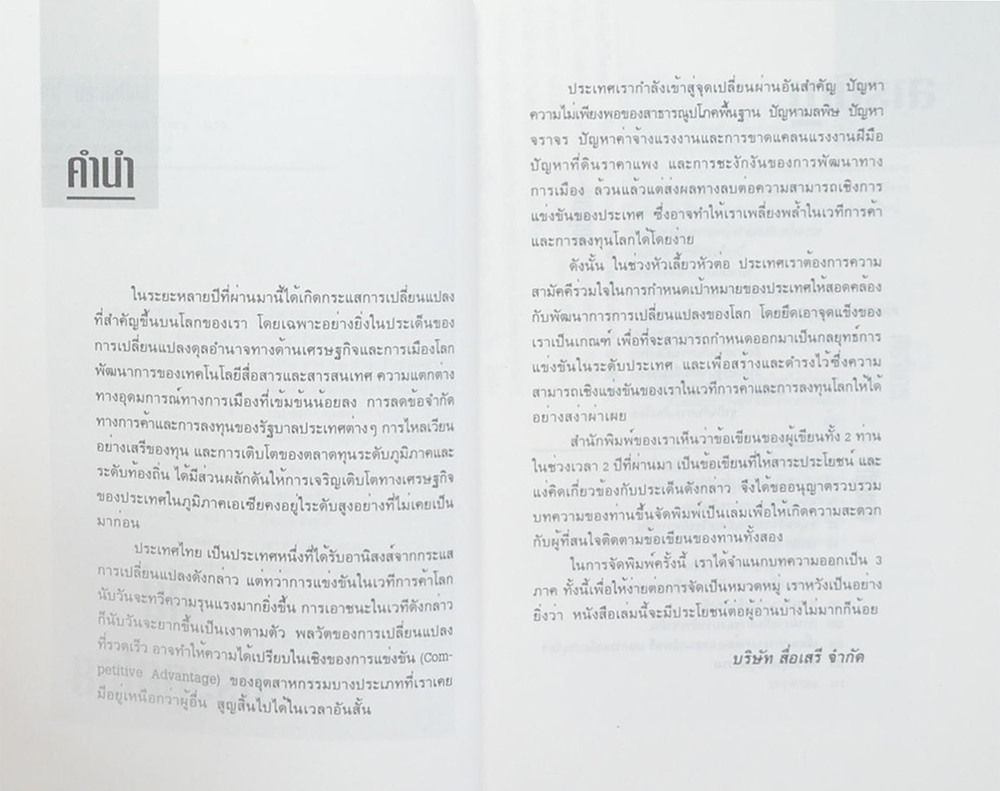 คำนำ
ในระยะหลายปีที่ผ่านมานี้ได้เกิดกระแสการเปลี่ยนแปลง
ที่สำคัญขึ้นบนโลกของเรา โดยเฉพาะอย่างยิ่งในประเด็นของ
การเปลี่ยนแปลงดุลอำนาจทางด้านเศรษฐกิจและการเมืองโลก
พัฒนาการของเทคโนโลยีสื่อสารและสารสนเทศ ความแตกต่าง
ทางอุดมการณ์ทางการเมืองที่เข้มข้นน้อยลง การลดข้อจำกัด
ทางการค้าและการลงทุนของรัฐบาลประเทศต่างๆ การไหลเวียน
อย่างเสรีของทุน และการเติบโตของตลาดทุนระดับภูมิภาคและ
ระดับท้องถิ่น ได้มีส่วนผลักดันให้การเจริญเติบโตทางเศรษฐกิจ
ของประเทศในภูมิภาคเอเซียคงอยู่ระดับสูงอย่างที่ไม่เคยเป็น
มาก่อน
ประเทศไทย เป็นประเทศหนึ่งที่ได้รับอานิสงส์จากกระแส
การเปลี่ยนแปลงดังกล่าว แต่ทว่าการแข่งขันในเวทีการค้าโลก
นับวันจะทวีความรุนแรงมากยิ่งขึ้น การเอาชนะในเวทีดังกล่าว
ก็นับวันจะยากขึ้นเป็นเงาตามตัว พลวัตของการเปลี่ยนแปลง
ที่รวดเร็ว อาจทำให้ความได้เปรียบในเชิงของการแข่งขัน (Com-
petitive Advantage) ของอุตสาหกรรมบางประเภทที่เราเคย
มีอยู่เหนือกว่าผู้อื่น สูญสิ้นไปได้ในเวลาอันสั้น
ประเทศเรากำลังเข้าสู่จุดเปลี่ยนผ่านอันสำคัญ ปัญหา
ความไม่เพียงพอของสาธารณูปโภคพื้นฐาน ปัญหามลพิษ ปัญหา
จราจร ปัญหาค่าจ้างแรงงานและการขาดแคลนแรงงานฝีมือ
ปัญหาที่ดินราคาแพง และการชะงักงันของการพัฒนาทาง
การเมือง ล้วนแล้วแต่ส่งผลทางลบต่อความสามารถเชิงการ
แข่งขันของประเทศ ซึ่งอาจทำให้เราเพลี่ยงพล้ำในเวทีการค้า
และการลงทุนโลกได้โดยง่าย
ดังนั้น ในช่วงหัวเลี้ยวหัวต่อ ประเทศเราต้องการความ
สามัคคีร่วมใจในการกำหนดเป้าหมายของประเทศให้สอดคล้อง
กับพัฒนาการการเปลี่ยนแปลงของโลก โดยยึดเอาจุดแข็งของ
เราเป็นเกณฑ์ เพื่อที่จะสามารถกำหนดออกมาเป็นกลยุทธ์การ
แข่งขันในระดับประเทศ และเพื่อสร้างและดำรงไว้ซึ่งความ
สามารถเชิงแข่งขันของเราในเวทีการค้าและการลงทุนโลกให้ได้
อย่างสง่าผ่าเผย
สำนักพิมพ์ของเราเห็นว่าข้อเขียนของผู้เขียนทั้ง 2 ท่าน
ในช่วงเวลา 2 ปีที่ผ่านมา เป็นข้อเขียนที่ให้สาระประโยชน์ และ
แง่คิดเกี่ยวข้องกับประเด็นดังกล่าว จึงได้ขออนุญาตรวบรวม
บทความของท่านขึ้นจัดพิมพ์เป็นเล่มเพื่อให้เกิดความสะดวก
กับผู้ที่สนใจติดตามข้อเขียนของท่านทั้งสอง
ในการจัดพิมพ์ครั้งนี้ เราได้จำแนกบทความออกเป็น 3
ภาค ทั้งนี้เพื่อให้ง่ายต่อการจัดเป็นหมวดหมู่ เราหวังเป็นอย่าง
ยิ่งว่า หนังสือเล่มนี้จะมีประโยชน์ต่อผู้อ่านบ้างไม่มากก็น้อย
บริษัท สื่อเสรี จำกัด